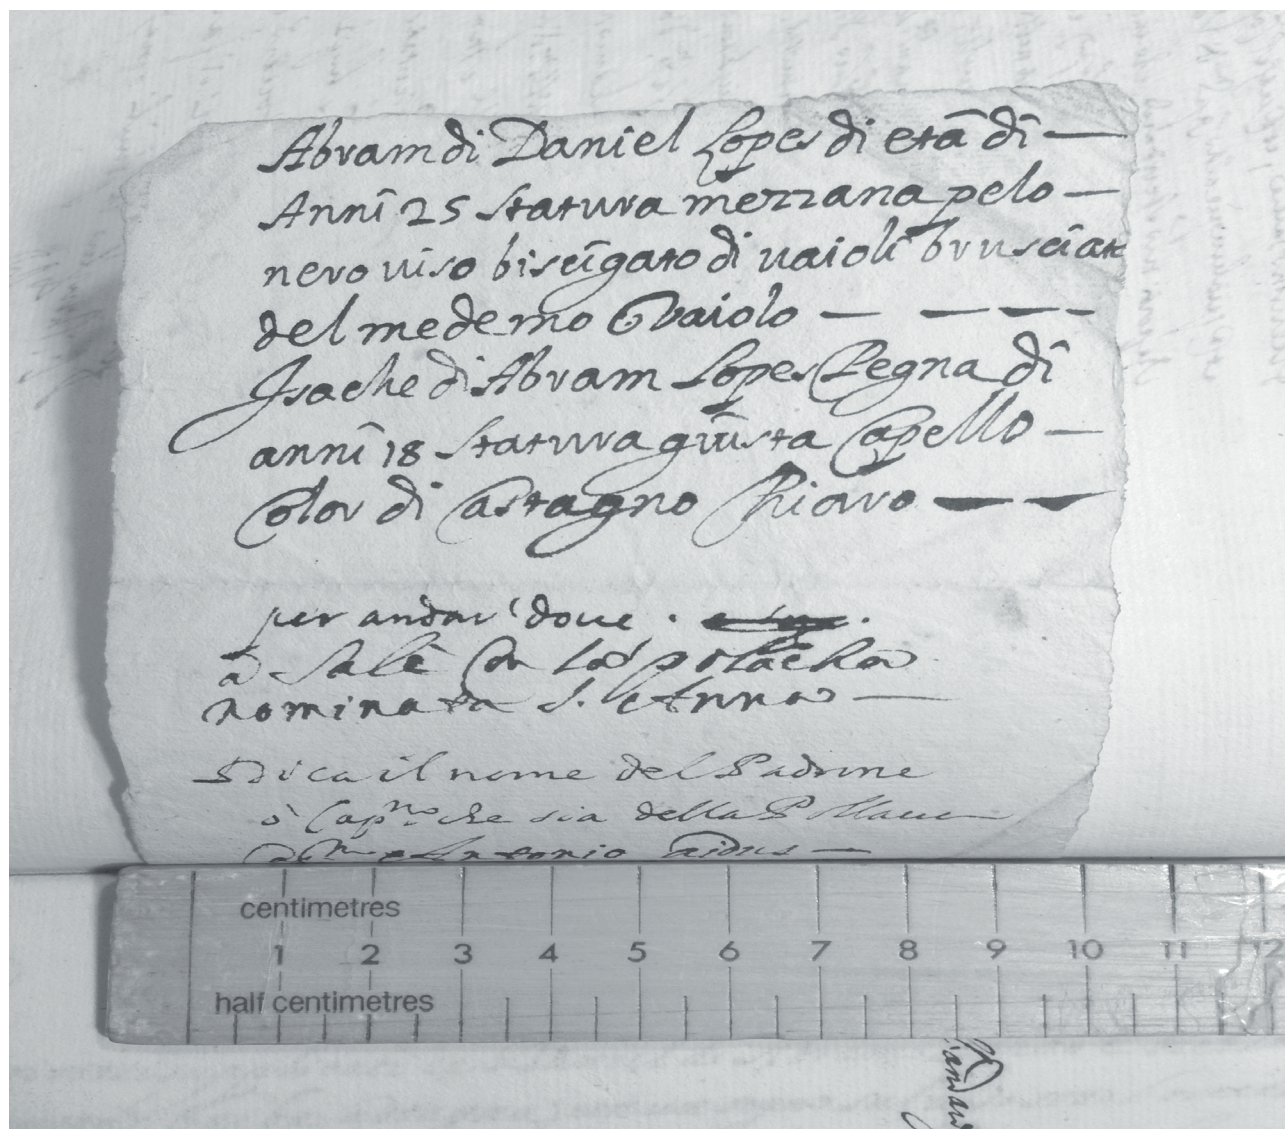 Abram di Daniel Lopes di età di —
Anni 25 statura mezzana pelo —
nero uiso biscigato di uaioli brusciat
del medemo Vaiolo — — — -
Isache di Abram Lopes Pegna di
anni 18 statura giusta Capello —
Color di Castagno Chiaro — —
per andar doue .
à Salè Con la polacha
nominata S. Anna —
Si dica il nome del Padrone
ò Capno. che sia della Pollacca
Antonio —
centimetres
1 2 3 4 5 6 7 8 9 10 11 12
half centimetres